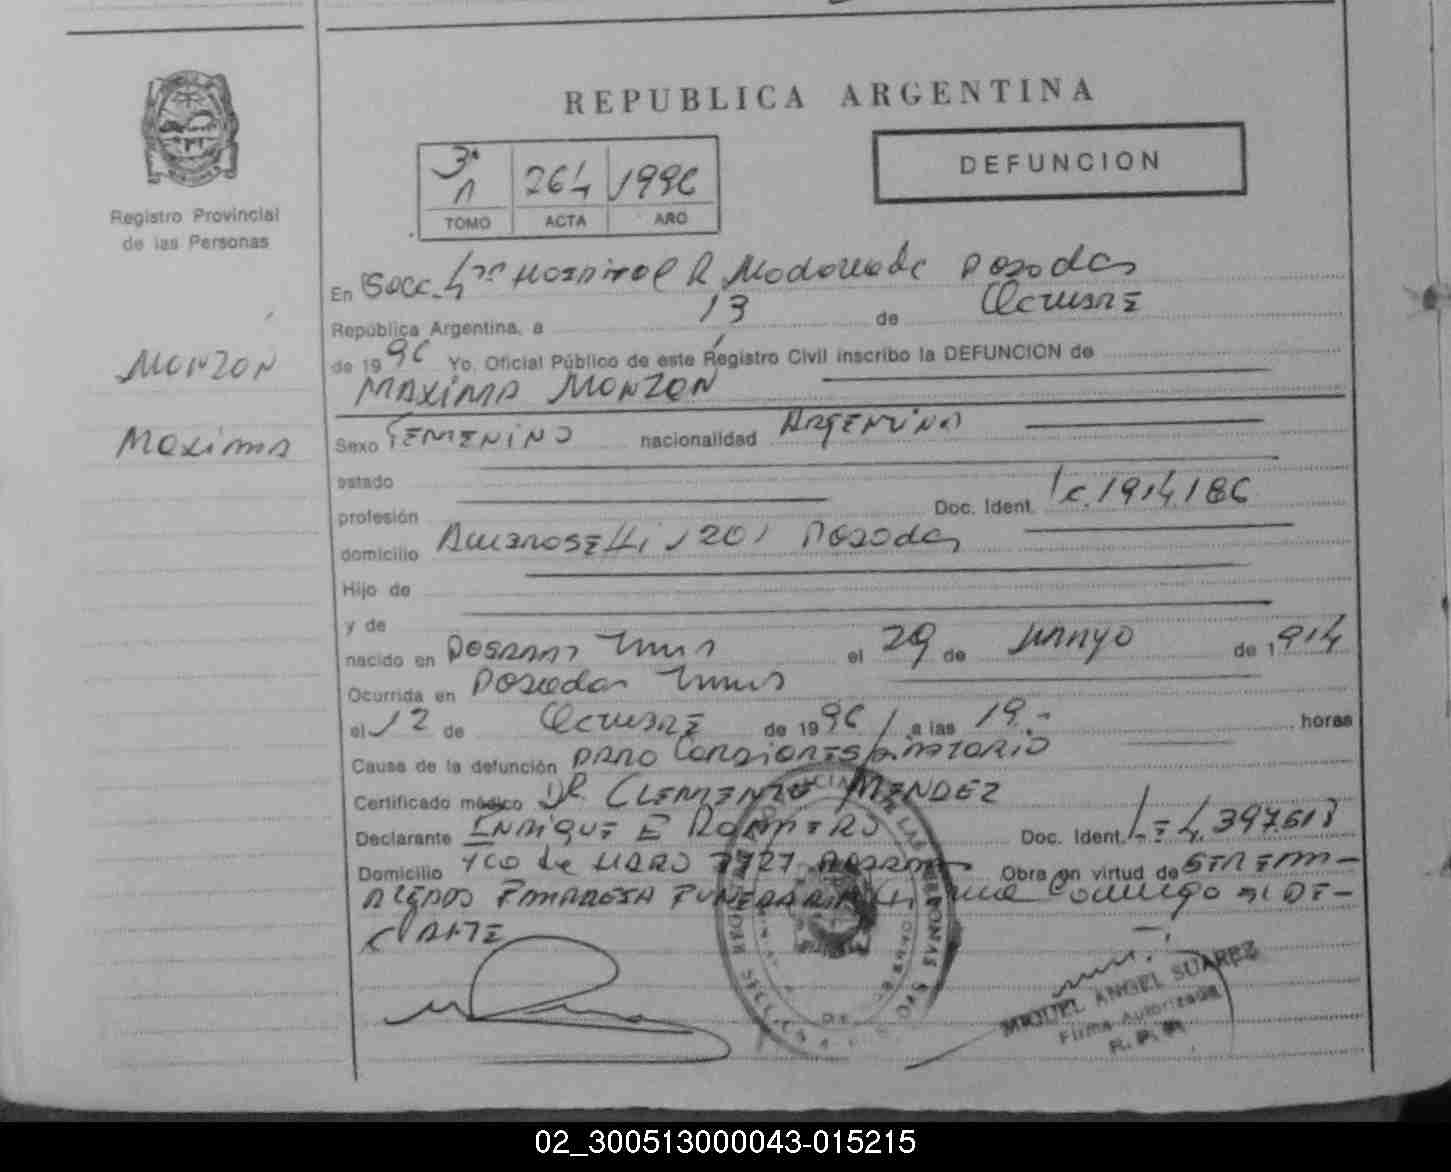 REPUBLICA ARGENTINA
DEFUNCION
3ª 264 1996
TOMO ACTA AÑO
Registro Provincial
de las Personas
MONZON
Maxima
En Secc. 4ta Hospital R Madariaga Posadas
República Argentina, a 13 de Octubre
de 1996 Yo, Oficial Público de este Registro Civil inscribo la DEFUNCION de
MAXIMA MONZON
Sexo FEMENINO nacionalidad ARGENTINA
estado
profesión Doc. Ident. Lc. 1914186
domicilio Ambrosetti 1201 Posadas
Hijo de
y de
nacido en el 29 de MAYO de 1914
Ocurrida en Posadas
el 12 de Octubre de 1996 a las 19.-
horas
Causa de la defunción PARO CARDIORESPIRATORIO
Certificado médico DR CLEMENTE MENDEZ
Declarante ENRIQUE E ROMERO Doc. Ident. LE 4.397.618
Domicilio de Obra en virtud de SER EM-
PLEADO EMPRESA FUNERARIA firma Conmigo el DE-
CLARANTE
MIGUEL ANGEL SUAREZ
Firma Autorizada
R. P. P.
02_300513000043-015215